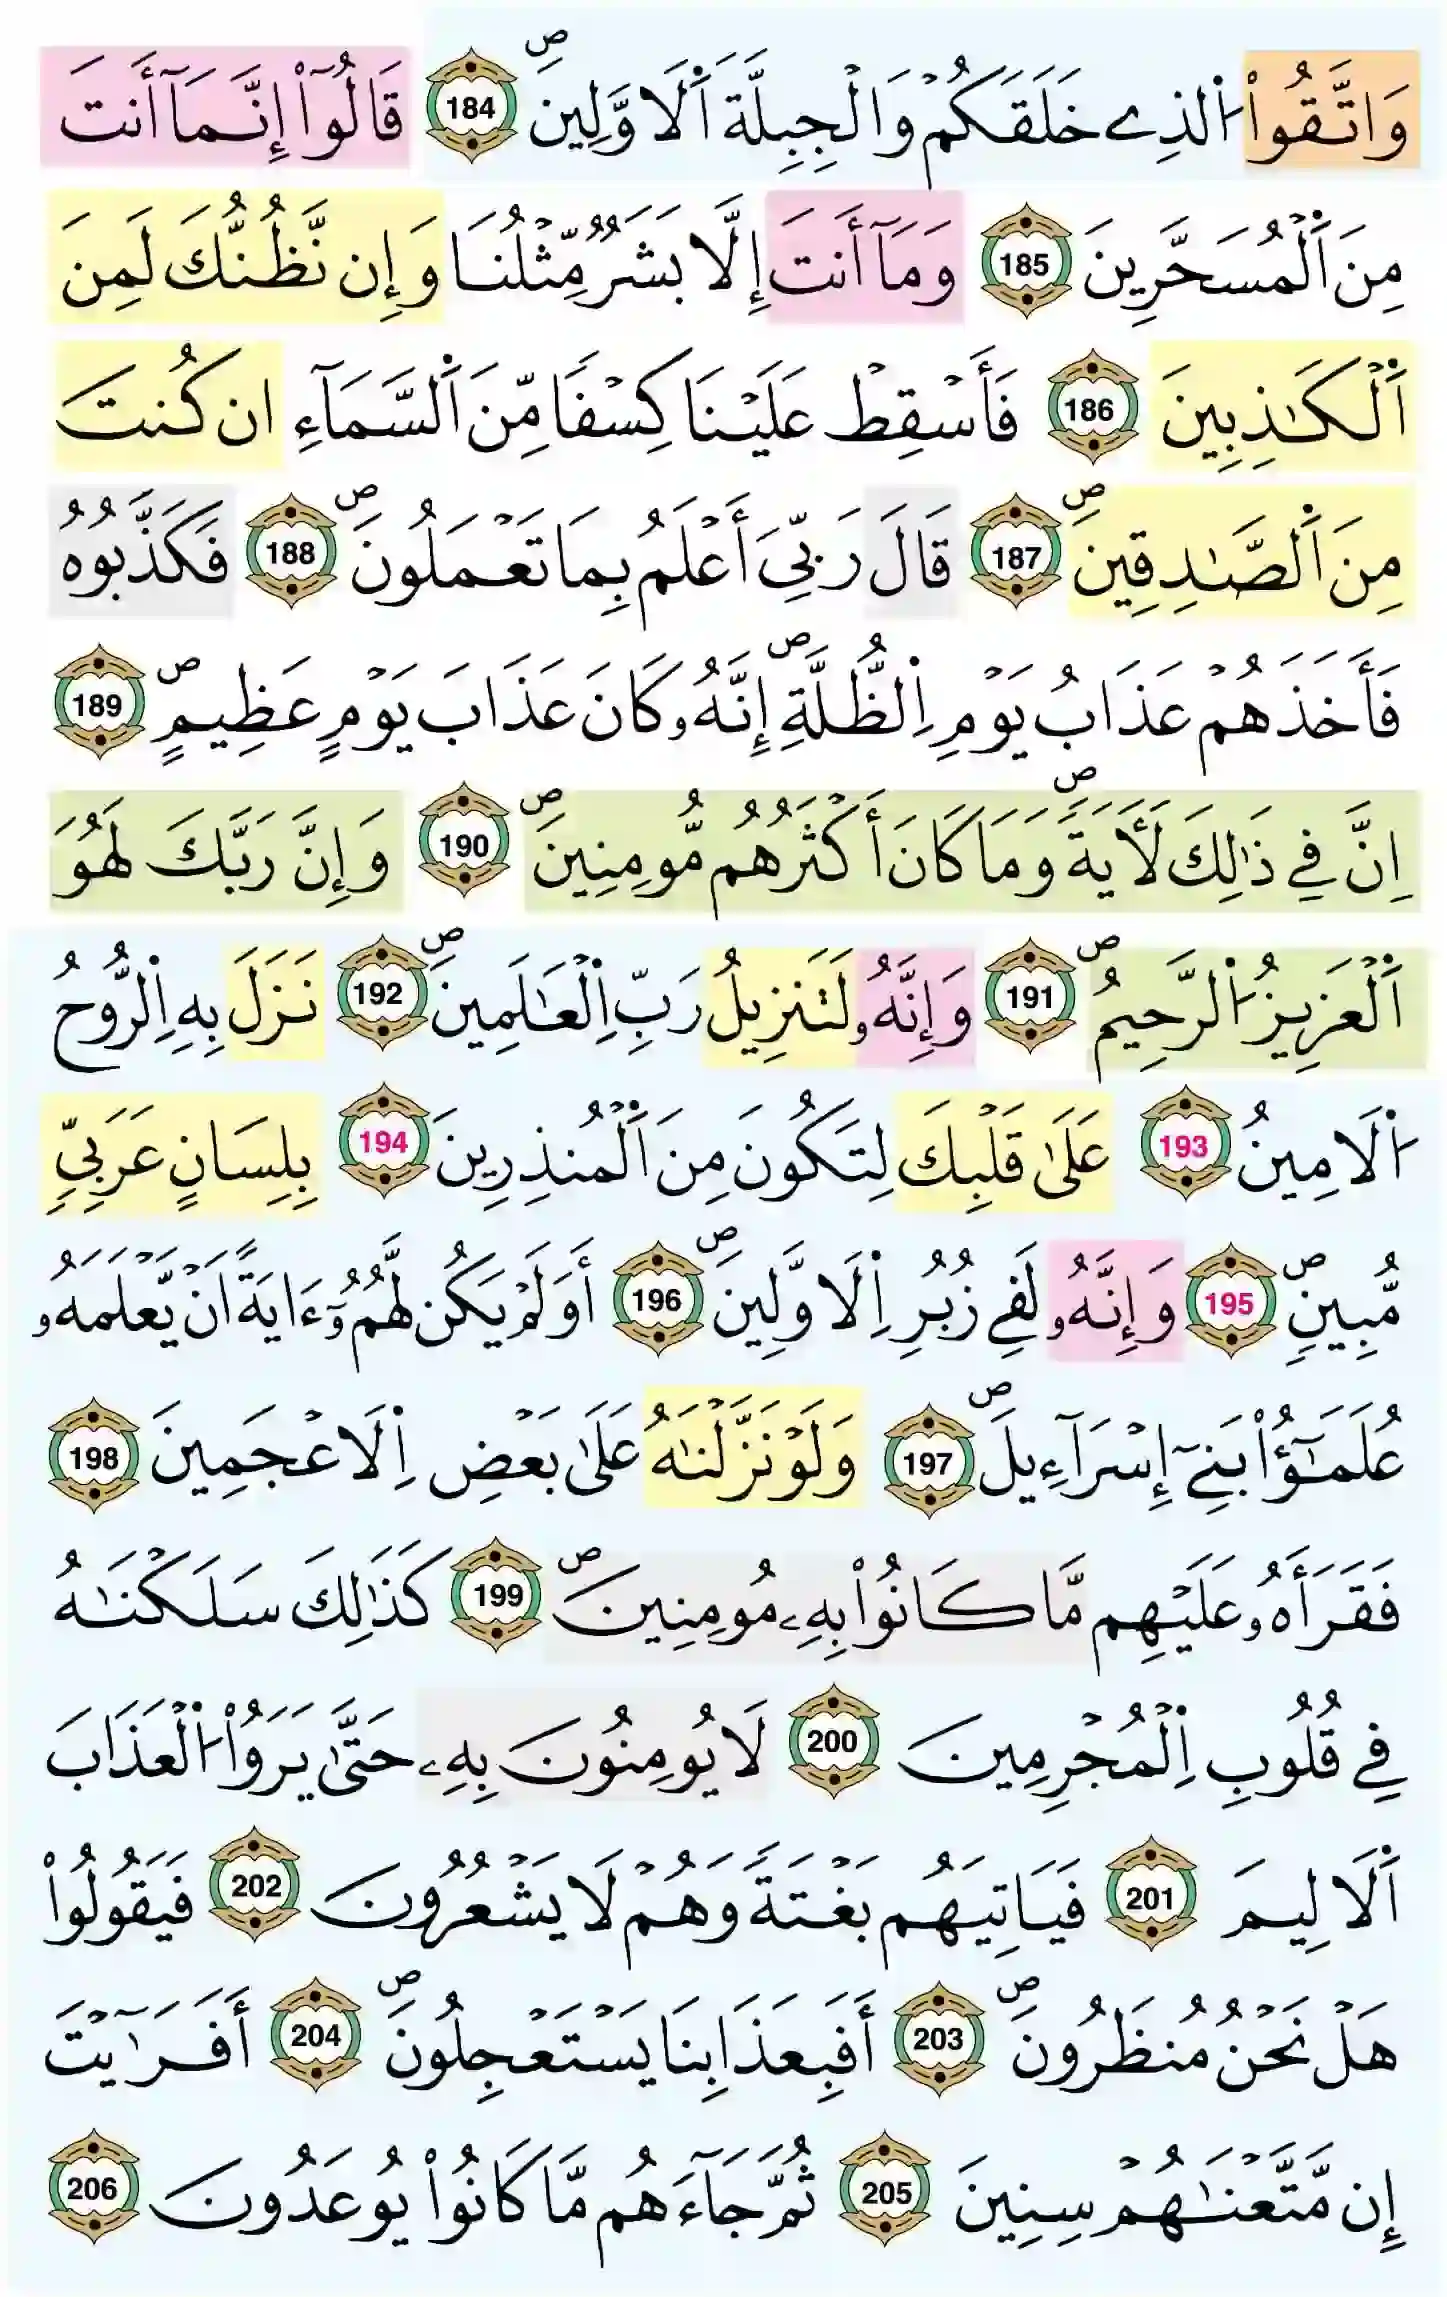 وَاتَّقُواْ اُ۬لذِے خَلَقَكُمْ وَالْجِبِلَّةَ اَ۬لَاوَّلِينَۖ 184 قَالُوٓاْ إِنَّمَآ أَنتَ
مِنَ اَ۬لْمُسَحَّرِينَ 185 وَمَآ أَنتَ إِلَّا بَشَرٞ مِّثْلُنَا وَإِن نَّظُنُّكَ لَمِنَ
اَ۬لْكَٰذِبِينَ 186 فَأَسْقِطْ عَلَيْنَا كِسْفاٗ مِّنَ اَ۬لسَّمَآءِ ان كُنتَ
مِنَ اَ۬لصَّٰدِقِينَۖ 187 قَالَ رَبِّيَ أَعْلَمُ بِمَا تَعْمَلُونَۖ 188 فَكَذَّبُوهُ
فَأَخَذَهُمْ عَذَابُ يَوْمِ اِ۬لظُّلَّةِۖ إِنَّهُۥ كَانَ عَذَابَ يَوْمٍ عَظِيمٍۖ 189
اِنَّ فِے ذَٰلِكَ لَأٓيَةٗۖ وَمَا كَانَ أَكْثَرُهُم مُّومِنِينَۖ 190 وَإِنَّ رَبَّكَ لَهُوَ
اَ۬لْعَزِيزُ اُ۬لرَّحِيمُۖ 191 وَإِنَّهُۥ لَتَنزِيلُ رَبِّ اِ۬لْعَٰلَمِينَۖ 192 نَزَلَ بِهِ اِ۬لرُّوحُ
اُ۬لَامِينُ 193 عَلَىٰ قَلْبِكَ لِتَكُونَ مِنَ اَ۬لْمُنذِرِينَ 194 بِلِسَانٍ عَرَبِيّٖ
مُّبِينٖۖ 195 وَإِنَّهُۥ لَفِے زُبُرِ اِ۬لَاوَّلِينَۖ 196 أَوَلَمْ يَكُن لَّهُمُۥٓ ءَايَةً اَنْ يَّعْلَمَهُۥ
عُلَمَٰٓؤُاْ بَنِےٓ إِسْرَآءِيلَۖ 197 وَلَوْ نَزَّلْنَٰهُ عَلَىٰ بَعْضِ اِ۬لَاعْجَمِينَ 198
فَقَرَأَهُۥ عَلَيْهِم مَّا كَانُواْ بِهِۦ مُومِنِينَۖ 199 كَذَٰلِكَ سَلَكْنَٰهُ
فِے قُلُوبِ اِ۬لْمُجْرِمِينَ 200 لَا يُومِنُونَ بِهِۦ حَتَّىٰ يَرَوُاْ اُ۬لْعَذَابَ
اَ۬لَالِيمَ 201 فَيَاتِيَهُم بَغْتَةٗ وَهُمْ لَا يَشْعُرُونَ 202 فَيَقُولُواْ
هَلْ نَحْنُ مُنظَرُونَۖ 203 أَفَبِعَذَابِنَا يَسْتَعْجِلُونَۖ 204 أَفَرَٰٓيْتَ
إِن مَّتَّعْنَٰهُمْ سِنِينَ 205 ثُمَّ جَآءَهُم مَّا كَانُواْ يُوعَدُونَ 206